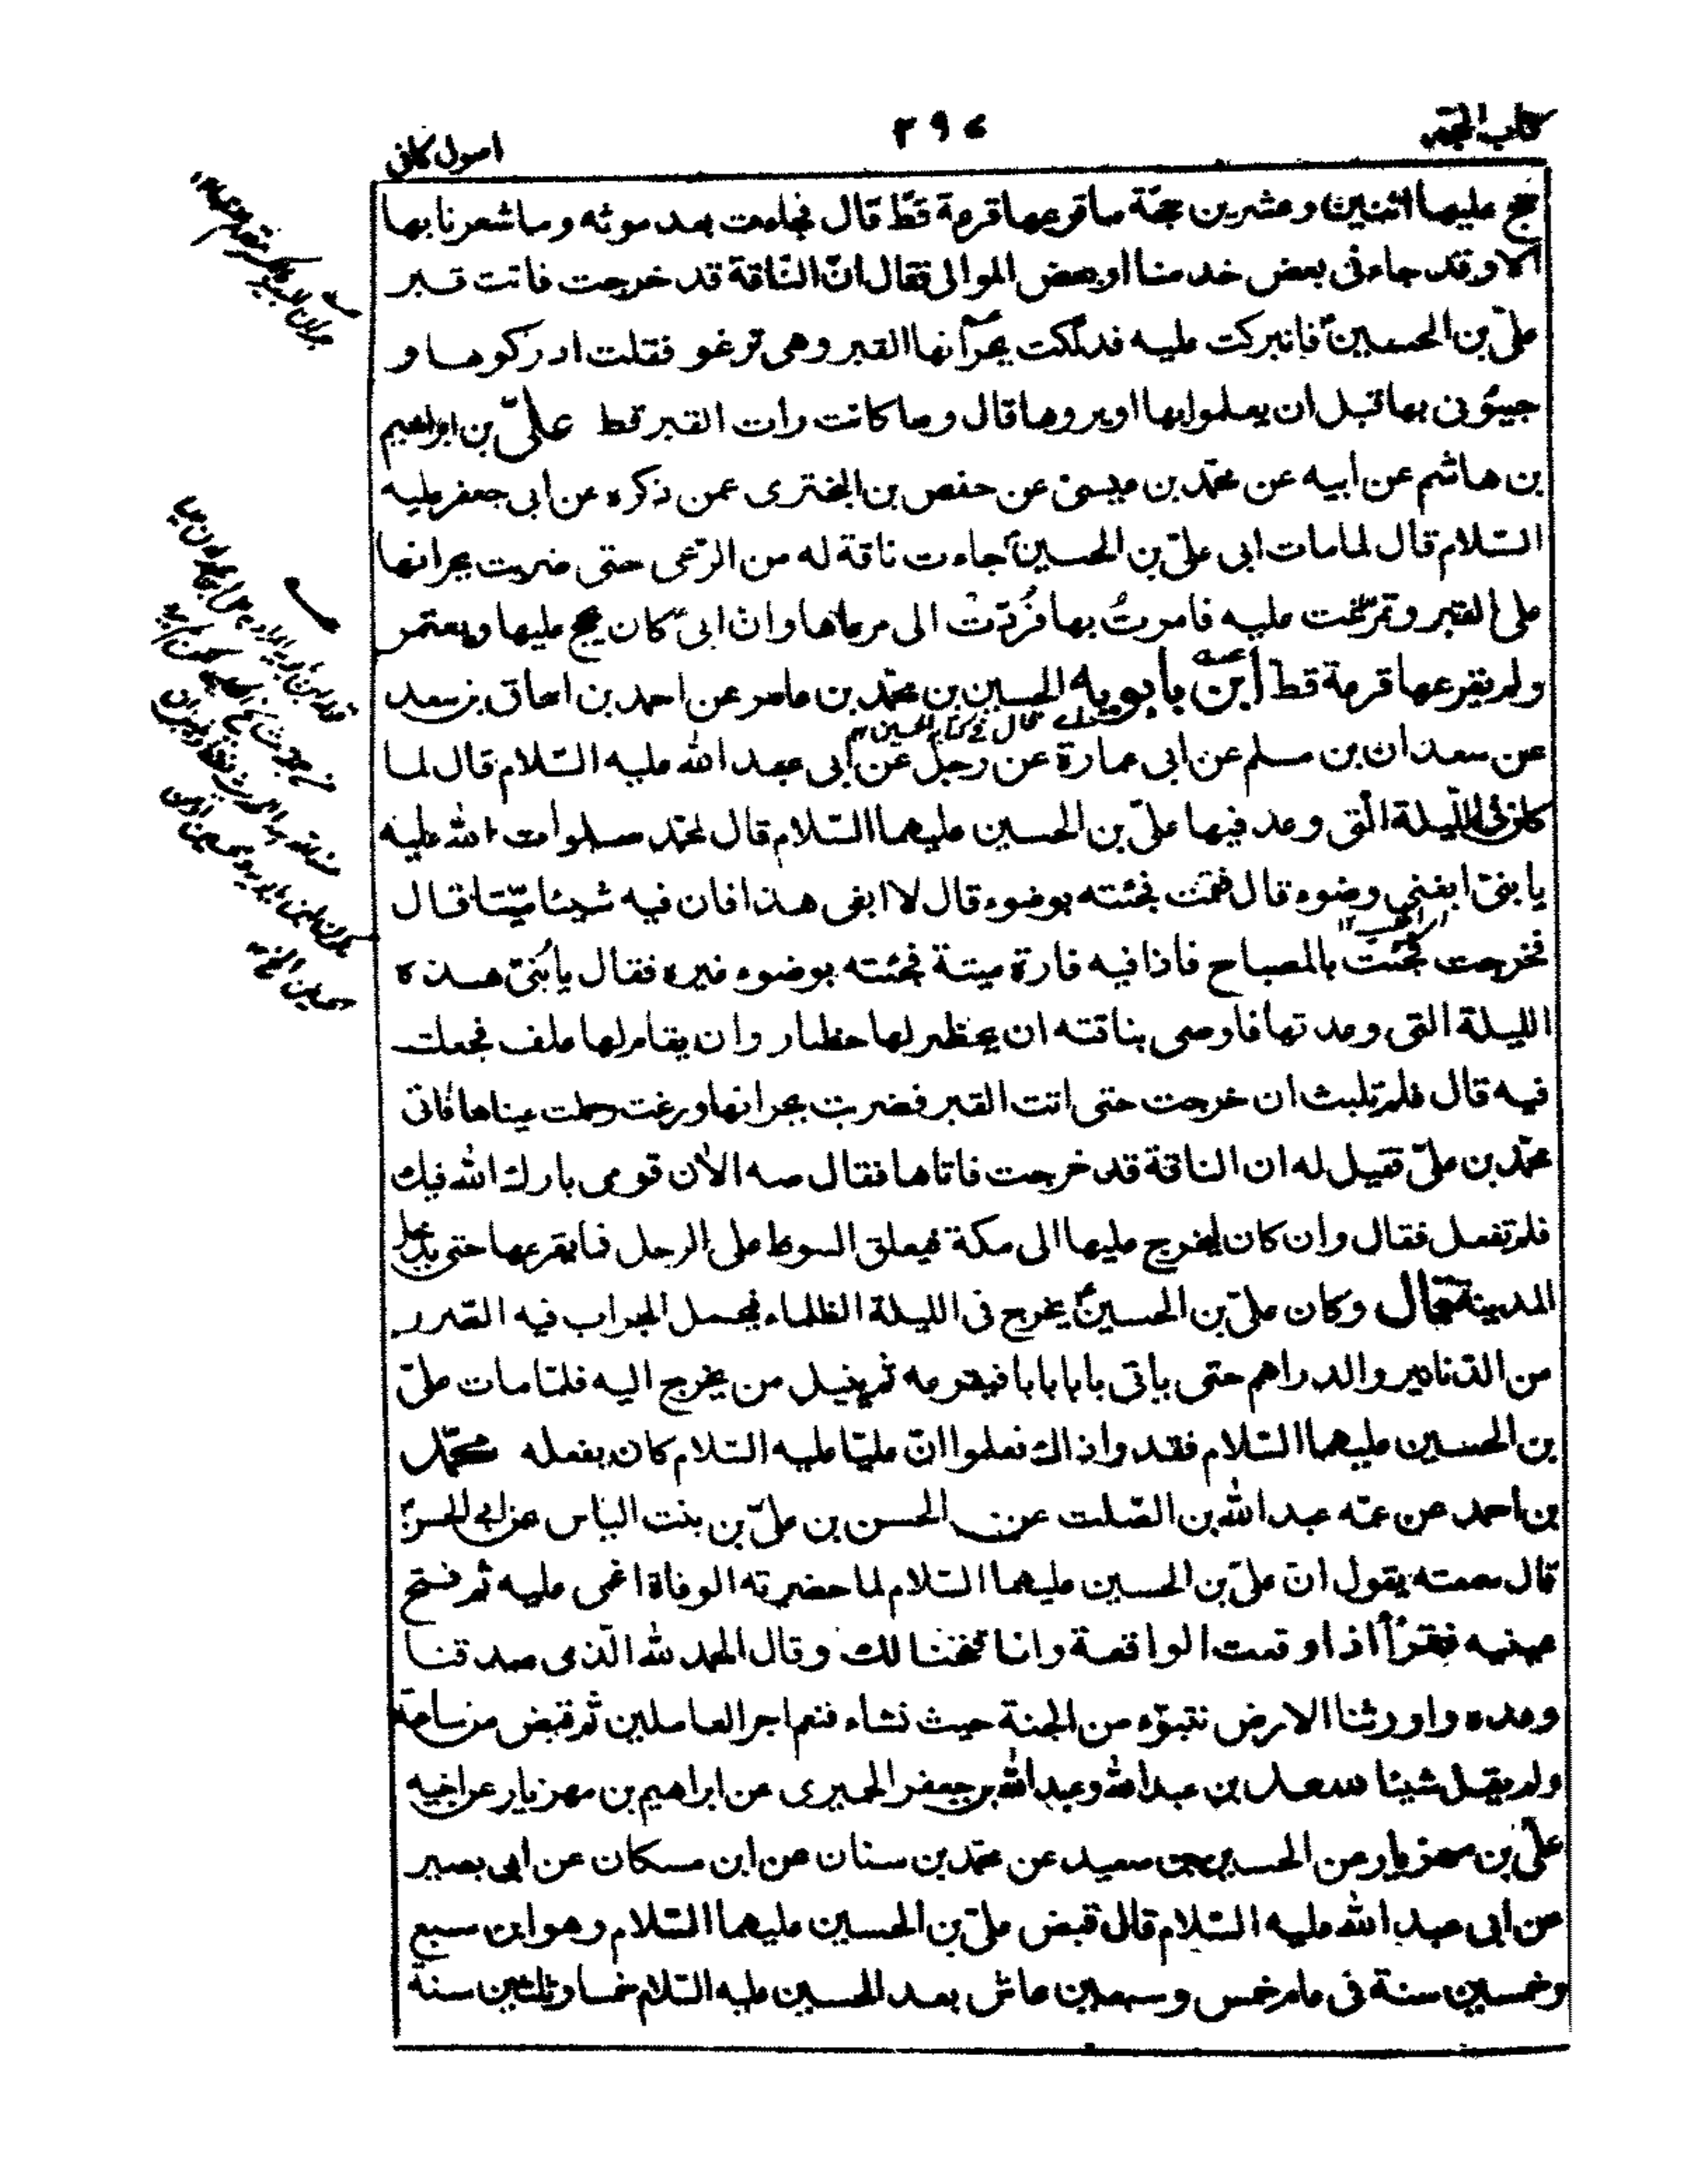 كتاب الحجة
٢٩٧
اصول كافى
حج عليها اثنين وعشرين حجّة ماقرعها قرعة قطّ قال فجاءت بعد موته وماشعرنا بها
الا وقد جاءنى بعض خدمنا اوبعض الموالى فقال انّ النّاقة قد خرجت فاتت قبر
علىّ بن الحسينؑ فانبركت عليه فدلكت بجرانها القبر وهى ترغو فقلت ادركوها و
جيئونى بها قبل ان يعلموا بها اويروها قال وما كانت رأت القبر قط علىّ بن ابراهيم
بن هاشم عن ابيه عن محمّد بن عيسى عن حفص بن البخترى عمن ذكره عن ابى جعفر عليه
السّلام قال لمامات ابى علىّ بن الحسينؑ جاءت ناقة له من الرّعى حتى ضربت بجرانها
على القبر وتمرّغت عليه فامرتُ بها فرُدّتْ الى مرعاها وان ابىؑ كان يحج عليها ويعتمر
ولم يقرعها قرعة قط ابن بابويه الحسين بن محمّد بن عامر عن احمد بن اسحاق بن سعد
عن سعدان بن مسلم عن ابى عمارة عن رجل عن ابى عبد الله عليه السّلام قال لما
كان فى اللّيلة الّتى وعد فيها علىّ بن الحسين عليهما السّلام قال لمحمّد صلوات الله عليه
يا بنىّ ابغنى وضوء قال فقمت فجئته بوضوء قال لا ابغى هذا فان فيه شيئا ميّتا قال
فخرجت فجئت بالمصباح فاذا فيه فارة ميتة فجئته بوضوء غيره فقال يا بُنىّ هذه
الليلة التى وعدتها فاوصى بناقته ان يحظر لها حظار وان يقام لها علف فجعلت
فيه قال فلم تلبث ان خرجت حتى اتت القبر فضربت بجرانها ورغت وهملت عيناها فاتى
محمّد بن علىّ فقيل له ان الناقة قد خرجت فاتاها فقال صه الآن قومى بارك الله فيك
فلم تفعل فقال وان كان ليخرج عليها الى مكة فيعلق السوط على الرحل فما يقرعها حتى يدخل
المدينة قال وكان علىّ بن الحسينؑ يخرج فى الليلة الظلماء فيحمل الجراب فيه الصّرر
من الدّنانير والدراهم حتى ياتى بابا بابا فيقرعه ثم ينيل من يخرج اليه فلمّا مات علىّ
بن الحسين عليهما السّلام فقدوا ذاك فعلموا انّ عليّا عليه السّلام كان يفعله محمّد
بن احمد عن عمّه عبد الله بن الصّلت عن الحسن بن علىّ بن بنت الياس عن ابى الحسنؑ
قال سمعته يقول انّ علىّ بن الحسين عليهما السّلام لما حضرته الوفاة اغمى عليه ثم فتح
عينيه فقرأ اذا وقعت الواقعة وانا فتحنا لك وقال الحمد لله الّذى صدقنا
وعده واورثنا الارض نتبوّء من الجنة حيث نشاء فنعم اجر العاملين ثم قبض من ساعته
ولم يقل شيئا سعد بن عبد الله وعبد الله بن جعفر الحميرى عن ابراهيم بن مهزيار عن اخيه
علىّ بن مهزيار عن الحسين بن سعيد عن محمّد بن سنان عن ابن مسكان عن ابى بصير
عن ابى عبد الله عليه السّلام قال قبض علىّ بن الحسين عليهما السّلام وهو ابن سبع
وخمسين سنة فى عام خمس وسبعين عاش بعد الحسين عليه السّلام خمسا وثلثين سنة